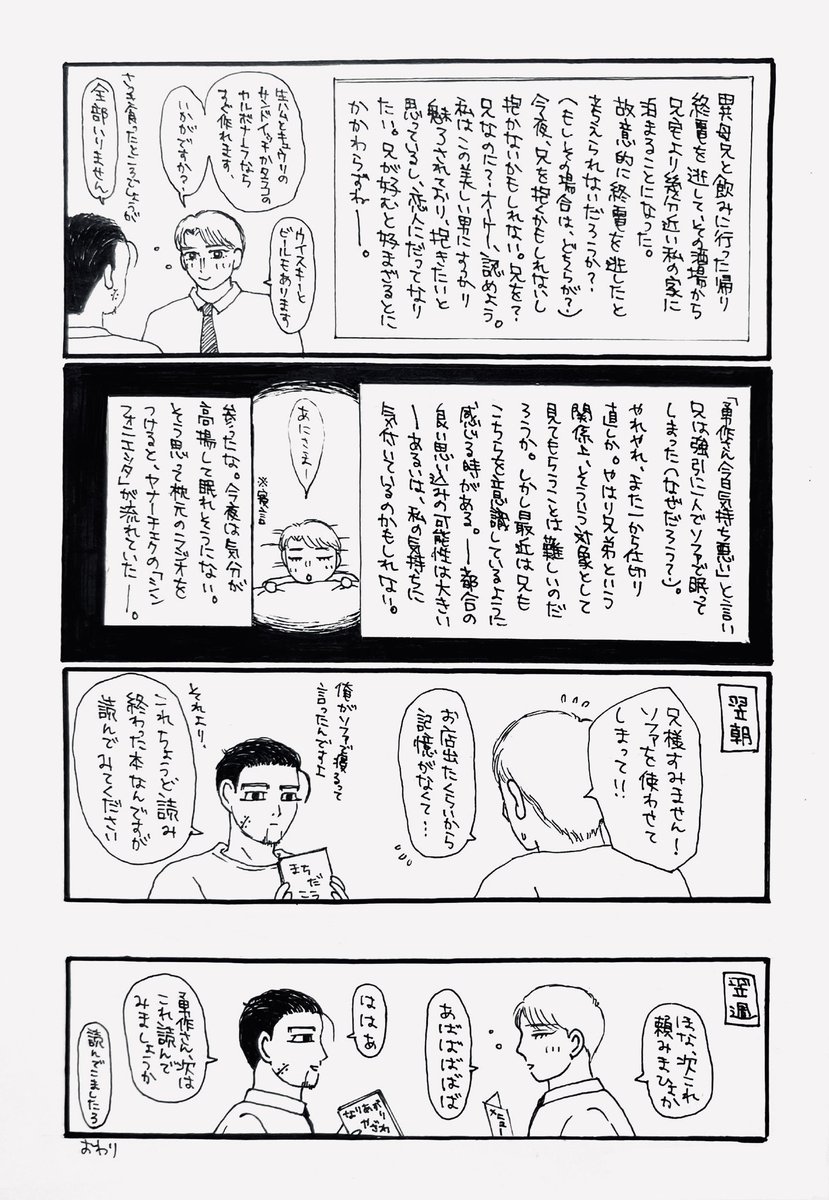 異母兄と飲みに行った帰り
終電を逃し、その酒場から
兄宅より幾分近い私の家に
泊まることになった。
故意的に終電を逃したと
考えられないだろうか?
(もしその場合は、どちらが?)
今夜、兄を抱くかもしれないし
抱かないかもしれない。兄を?
兄なのに?オーケー、認めよう。
私はこの美しい男にすっかり
魅了されており、抱きたいと
思っているし、恋人にだってなり
たい。兄が好むと好まざるとに
かかわらずね―。
ウイスキーと
ビールもあります
生ハムとキュウリの
サンドイッチかタラコの
カルボナーラなら
すぐ作れます、
いかがですか?
全部いりません
さっき食ったところでしょうが
「勇作さん今日気持ち悪い」と言い
兄は強引に一人でソファで眠って
しまった(なぜだろうって?)。
やれやれ、また一から仕切り
直しか。やはり兄弟という
関係上、そういう対象として
見てもらうことは難しいのだ
ろうか。しかし最近は兄も
こちらを意識しているように
感じる時がある。―都合の
良い思い込みの可能性は大きい
―あるいは、私の気持ちに
気付いているのかもしれない。
あにさまー
※寝言
参ったな。今夜は気分が
高揚して眠れそうにない。
そう思って枕元のラジオを
つけると、ヤナーチェクの「シン
フォニエッタ」が流れていた―。
翌朝
兄様すみません!
ソファを使わせて
しまって!!
お店出たくらいから
記憶がなくて…
俺がソファで寝るって
言ったんですよ
それより、
これちょうど読み
終わった本なんですが
読んでみてください
まちだ
こう
翌週
ほな、次これ
頼みまひょか
あばばばばば
メニュー
ははあ
なりあがり
やざわ
勇作さん、次は
これ読んで
みましょうか
読んでこましたろ
おわり